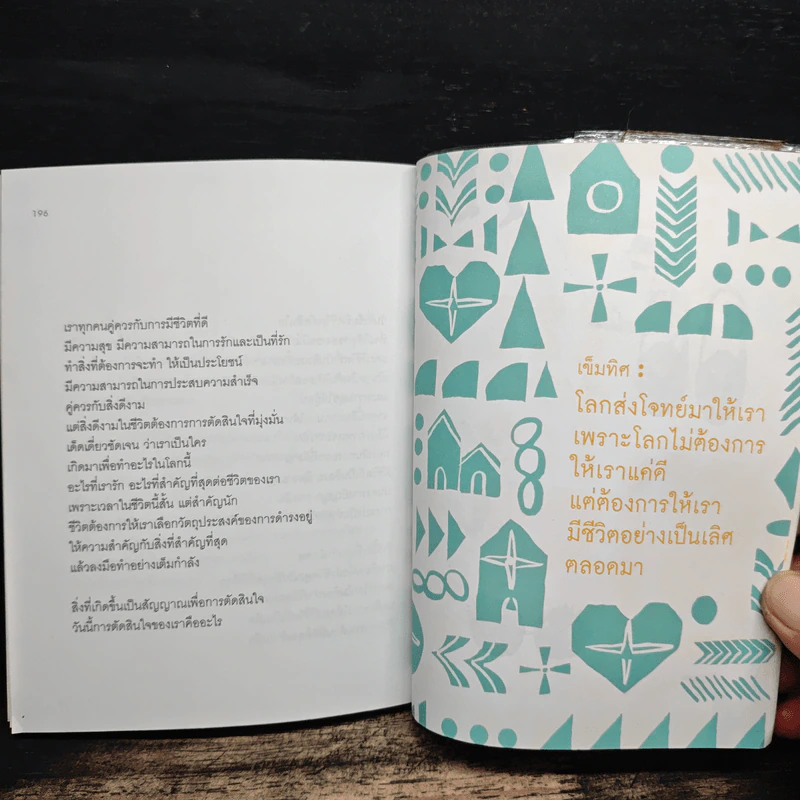 196
เราทุกคนคู่ควรกับการมีชีวิตที่ดี
มีความสุข มีความสามารถในการรักและเป็นที่รัก
ทำสิ่งที่ต้องการจะทำ ให้เป็นประโยชน์
มีความสามารถในการประสบความสำเร็จ
คู่ควรกับสิ่งดีงาม
แต่สิ่งดีงามในชีวิตต้องการการตัดสินใจที่มุ่งมั่น
เด็ดเดี่ยวชัดเจน ว่าเราเป็นใคร
เกิดมาเพื่อทำอะไรในโลกนี้
อะไรที่เรารัก อะไรที่สำคัญที่สุดต่อชีวิตของเรา
เพราะเวลาในชีวิตนี้สั้น แต่สำคัญนัก
ชีวิตต้องการให้เราเลือกวัตถุประสงค์ของการดำรงอยู่
ให้ความสำคัญกับสิ่งที่สำคัญที่สุด
แล้วลงมือทำอย่างเต็มกำลัง
สิ่งที่เกิดขึ้นเป็นสัญญาณเพื่อการตัดสินใจ
วันนี้การตัดสินใจของเราคืออะไร
เข็มทิศ :
โลกส่งโจทย์มาให้เรา
เพราะโลกไม่ต้องการ
ให้เราแค่ดี
แต่ต้องการให้เรา
มีชีวิตอย่างเป็นเลิศ
ตลอดมา